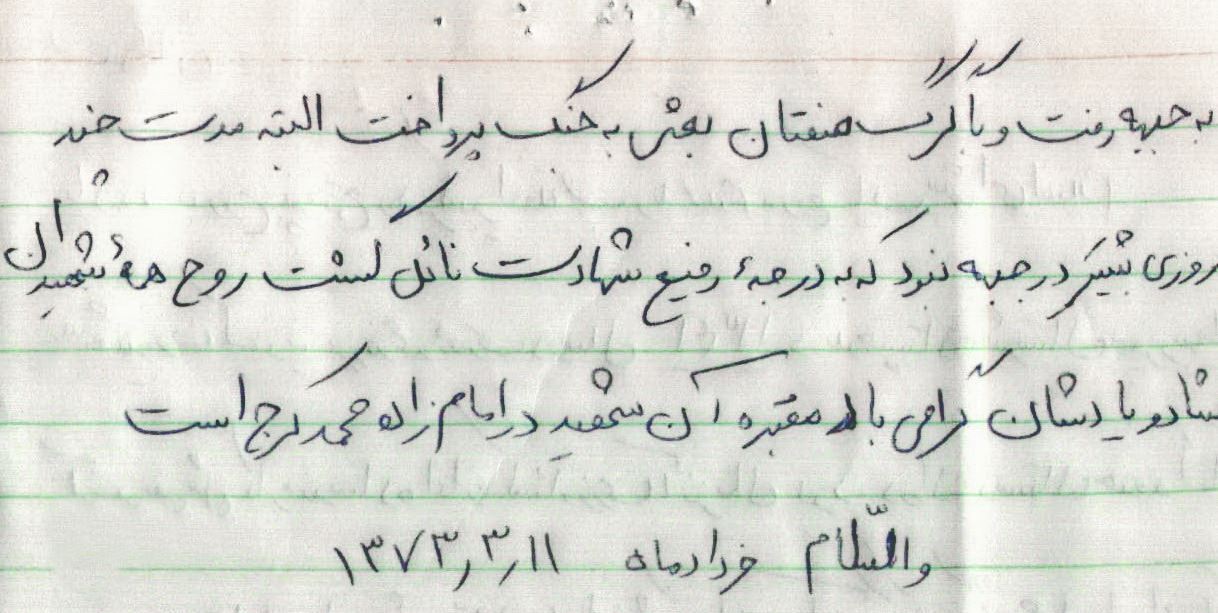 به جبهه رفت و با گرگ صفتان بعثی به جنگ پرداخت البته مدت چند
روزی بیشتر در جبهه نبود که به درجهٔ رفیع شهادت نائل گشت روح همهٔ شهیدان
شاد و یادشان گرامی باد مقبره آن شهید در امام زاده محمد کرج است
والسّلام خردادماه ۱۳۷۳٫۳٫۱۱